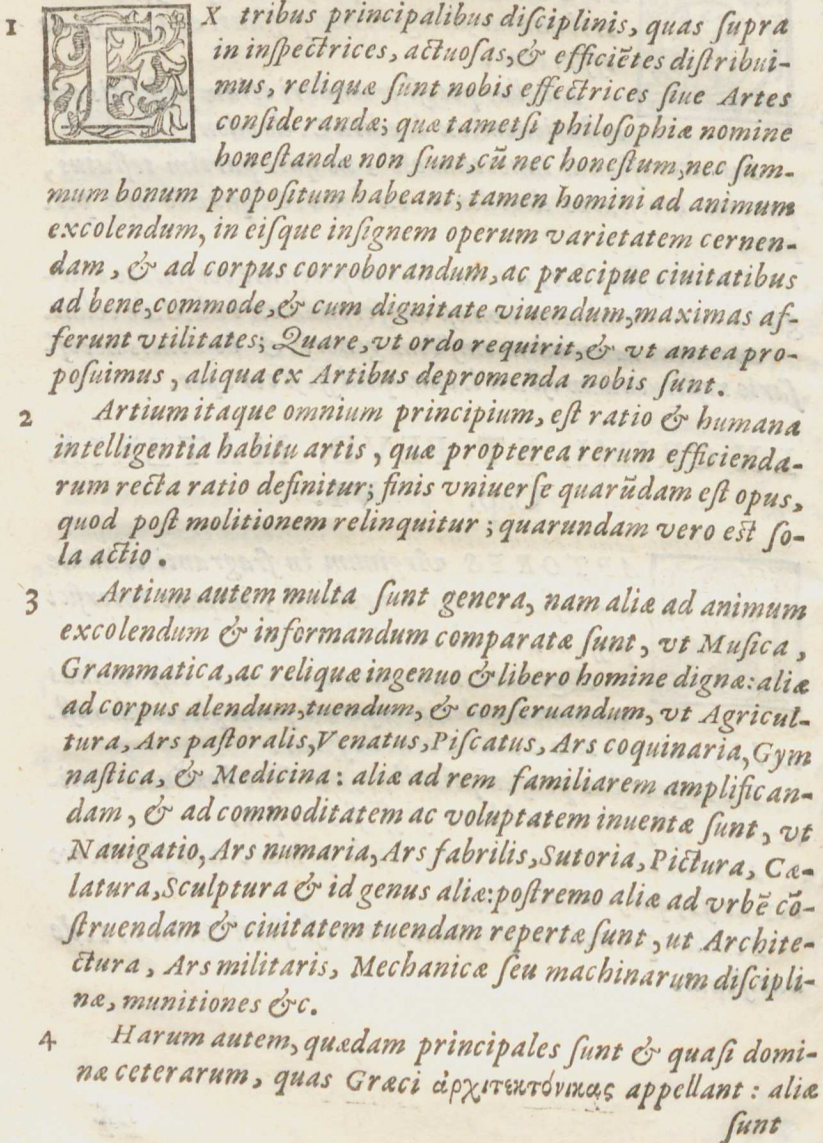 1 EX tribus principalibus diſciplinis, quas ſupra
in inſpectrices, actuoſas, & efficiẽtes diſtribui-
mus, reliquæ ſunt nobis effectrices ſiue Artes
conſiderandæ; quæ tametſi philoſophiæ nomine
honeſtandæ non ſunt, cũ nec honeſtum, nec ſum-
mum bonum propoſitum habeant; tamen homini ad animum
excolendum, in eiſque inſignem operum varietatem cernen-
dam, & ad corpus corroborandum, ac præcipue ciuitatibus
ad bene, commode, & cum dignitate viuendum, maximas af-
ferunt vtilitates; Quare, vt ordo requirit, & vt antea pro-
poſuimus, aliqua ex Artibus depromenda nobis ſunt.
2 Artium itaque omnium principium, eſt ratio & humana
intelligentia habitu artis, quæ propterea rerum efficienda-
rum recta ratio definitur; finis vniuerſe quarũdam eſt opus,
quod poſt molitionem relinquitur; quarundam vero eſt ſo-
la actio.
3 Artium autem multa ſunt genera, nam aliæ ad animum
excolendum & informandum comparatæ ſunt, vt Muſica,
Grammatica, ac reliquæ ingenuo & libero homine dignæ: aliæ
ad corpus alendum, tuendum, & conſeruandum, vt Agricul-
tura, Ars paſtoralis, Venatus, Piſcatus, Ars coquinaria, Gym
naſtica, & Medicina: aliæ ad rem familiarem amplifican-
dam, & ad commoditatem ac voluptatem inuentæ ſunt, vt
Nauigatio, Ars numaria, Ars fabrilis, Sutoria, Pictura, Cæ-
latura, Sculptura & id genus aliæ: poſtremo aliæ ad vrbẽ cõ-
ſtruendam & ciuitatem tuendam repertæ ſunt, ut Archite-
ctura, Ars militaris, Mechanicæ ſeu machinarum diſcipli-
næ, munitiones &c.
4 Harum autem, quædam principales ſunt & quaſi domi-
næ ceterarum, quas Græci ἀρχιτεκτόνικας appellant: aliæ
ſunt